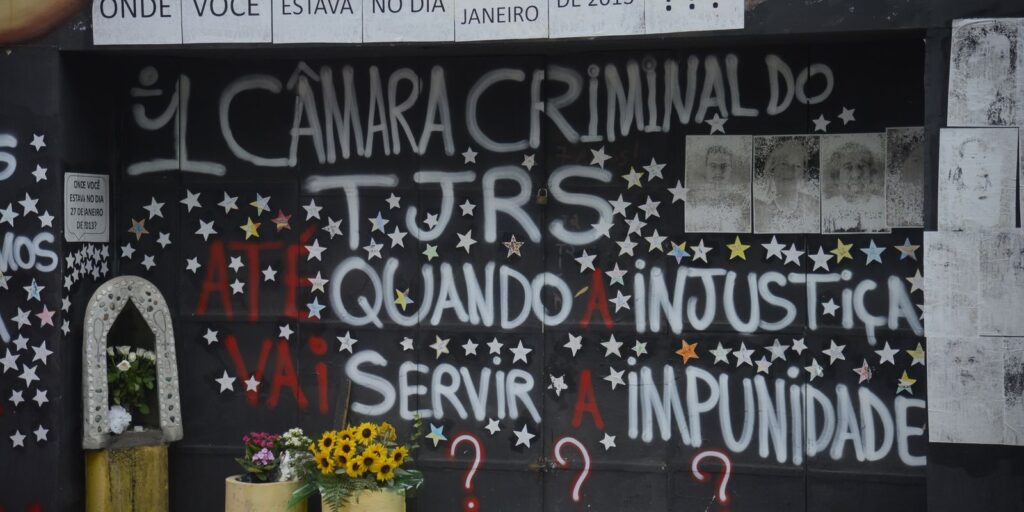 ONDE VOCÊ ESTAVA NO DIA JANEIRO DE 2013 ???
1 CÂMARA CRIMINAL DO
TJRS
ONDE VOCÊ
ESTAVA NO DIA
27 DE JANEIRO
DE 2013?
MOS
ATÉ QUANDO A INJUSTIÇA
VAI SERVIR A IMPUNIDADE
? ? ?